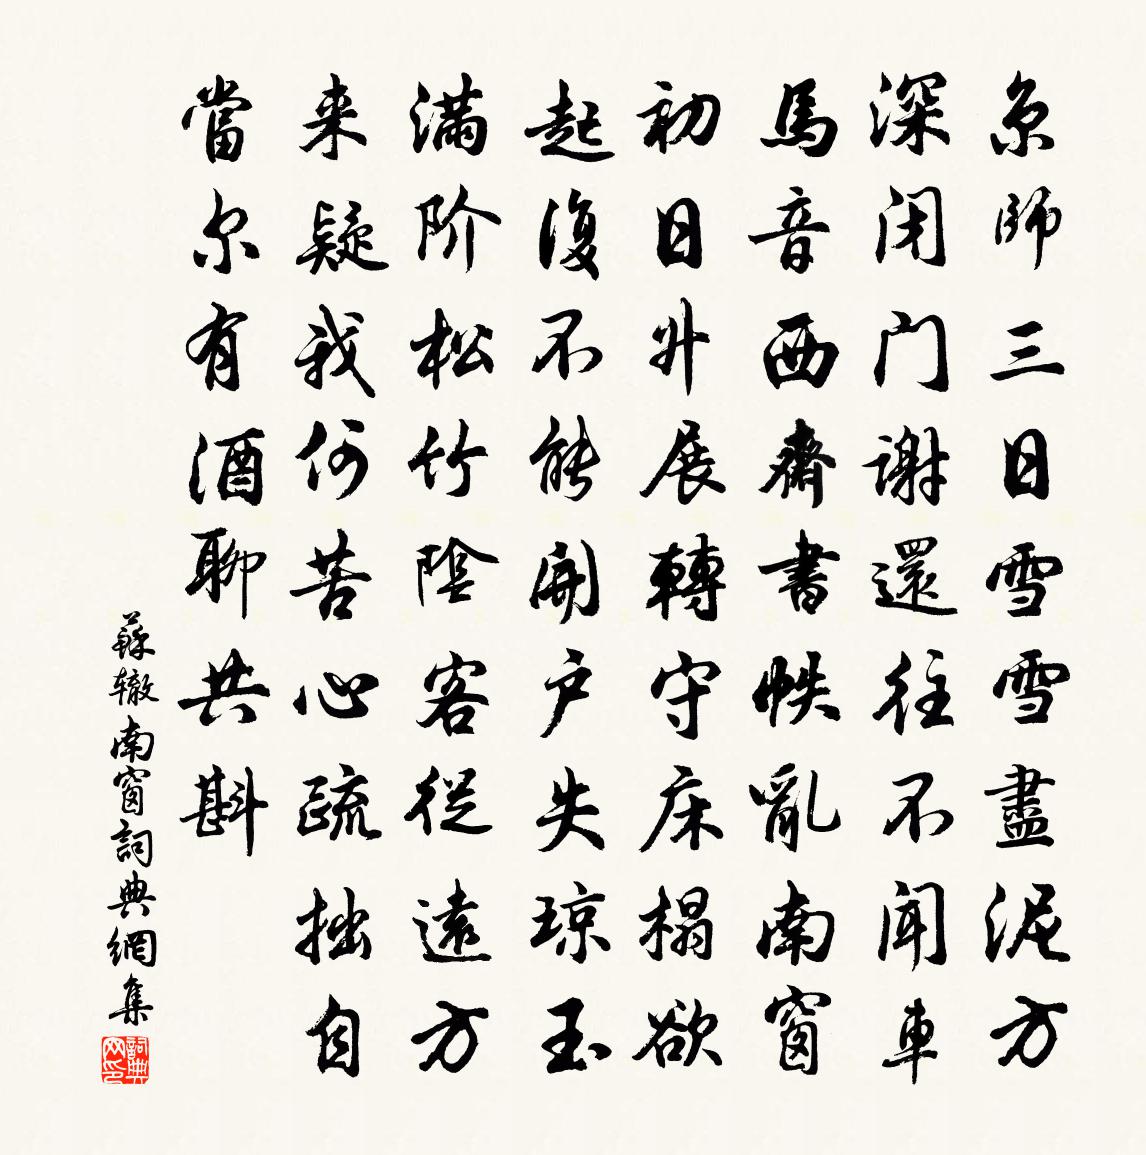 京師三日雪雪盡泥方
深闭门謝還往不聞車
馬音西齋書帙亂南窗
初日升展轉守床榻欲
起復不能開户失琼玉
满阶松竹陰客從遠方
来疑我何苦心疏拙自
當尔有酒聊共斟
蘇辙南窗詞典網集
詞典网印